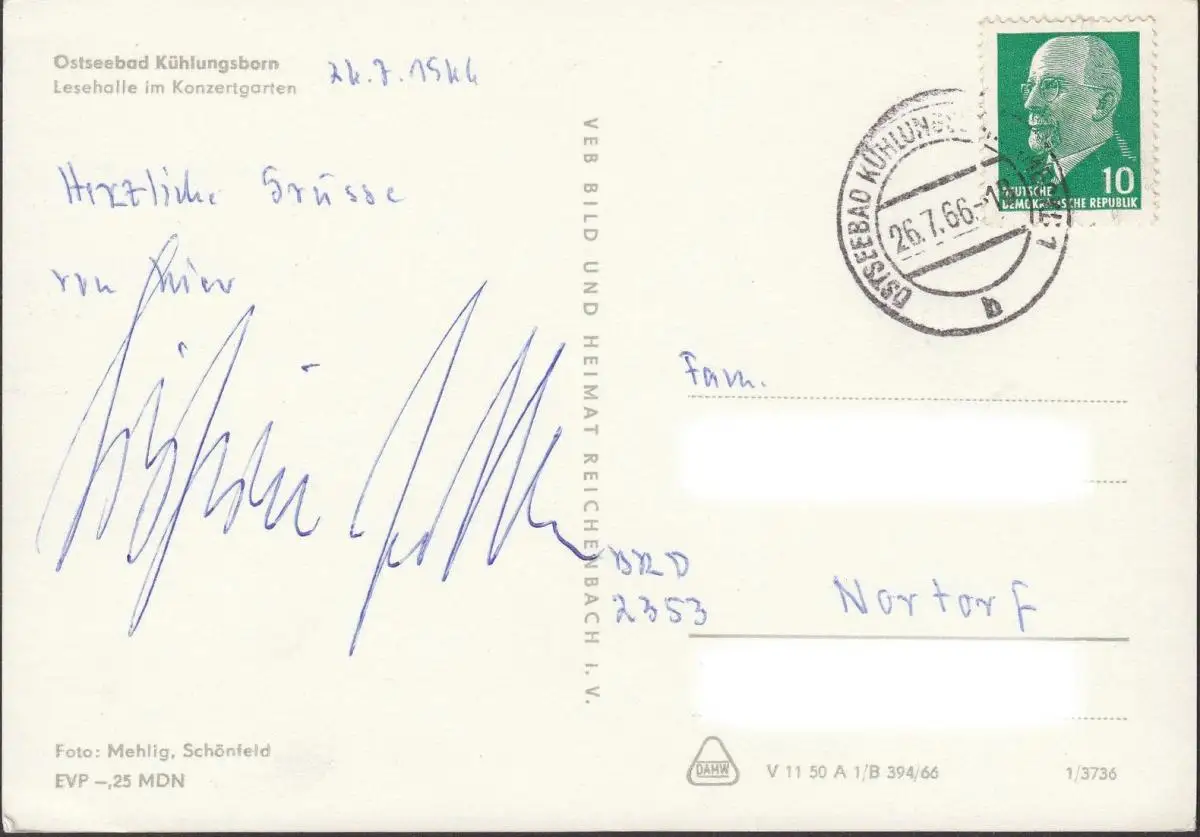 Ostseebad Kühlungsborn
Lesehalle im Konzertgarten
Herzliche Grüsse
von hier
VEB BILD UND HEIMAT REICHENBACH I. V.
10
DEUTSCHE
DEMOKRATISCHE REPUBLIK
OSTSEEBAD
26.7.66
b
Fam.
BRD
2353 Nortorf
Foto: Mehlig, Schönfeld
EVP –,25 MDN
DAMW
V 11 50 A 1/B 394/66
1/3736